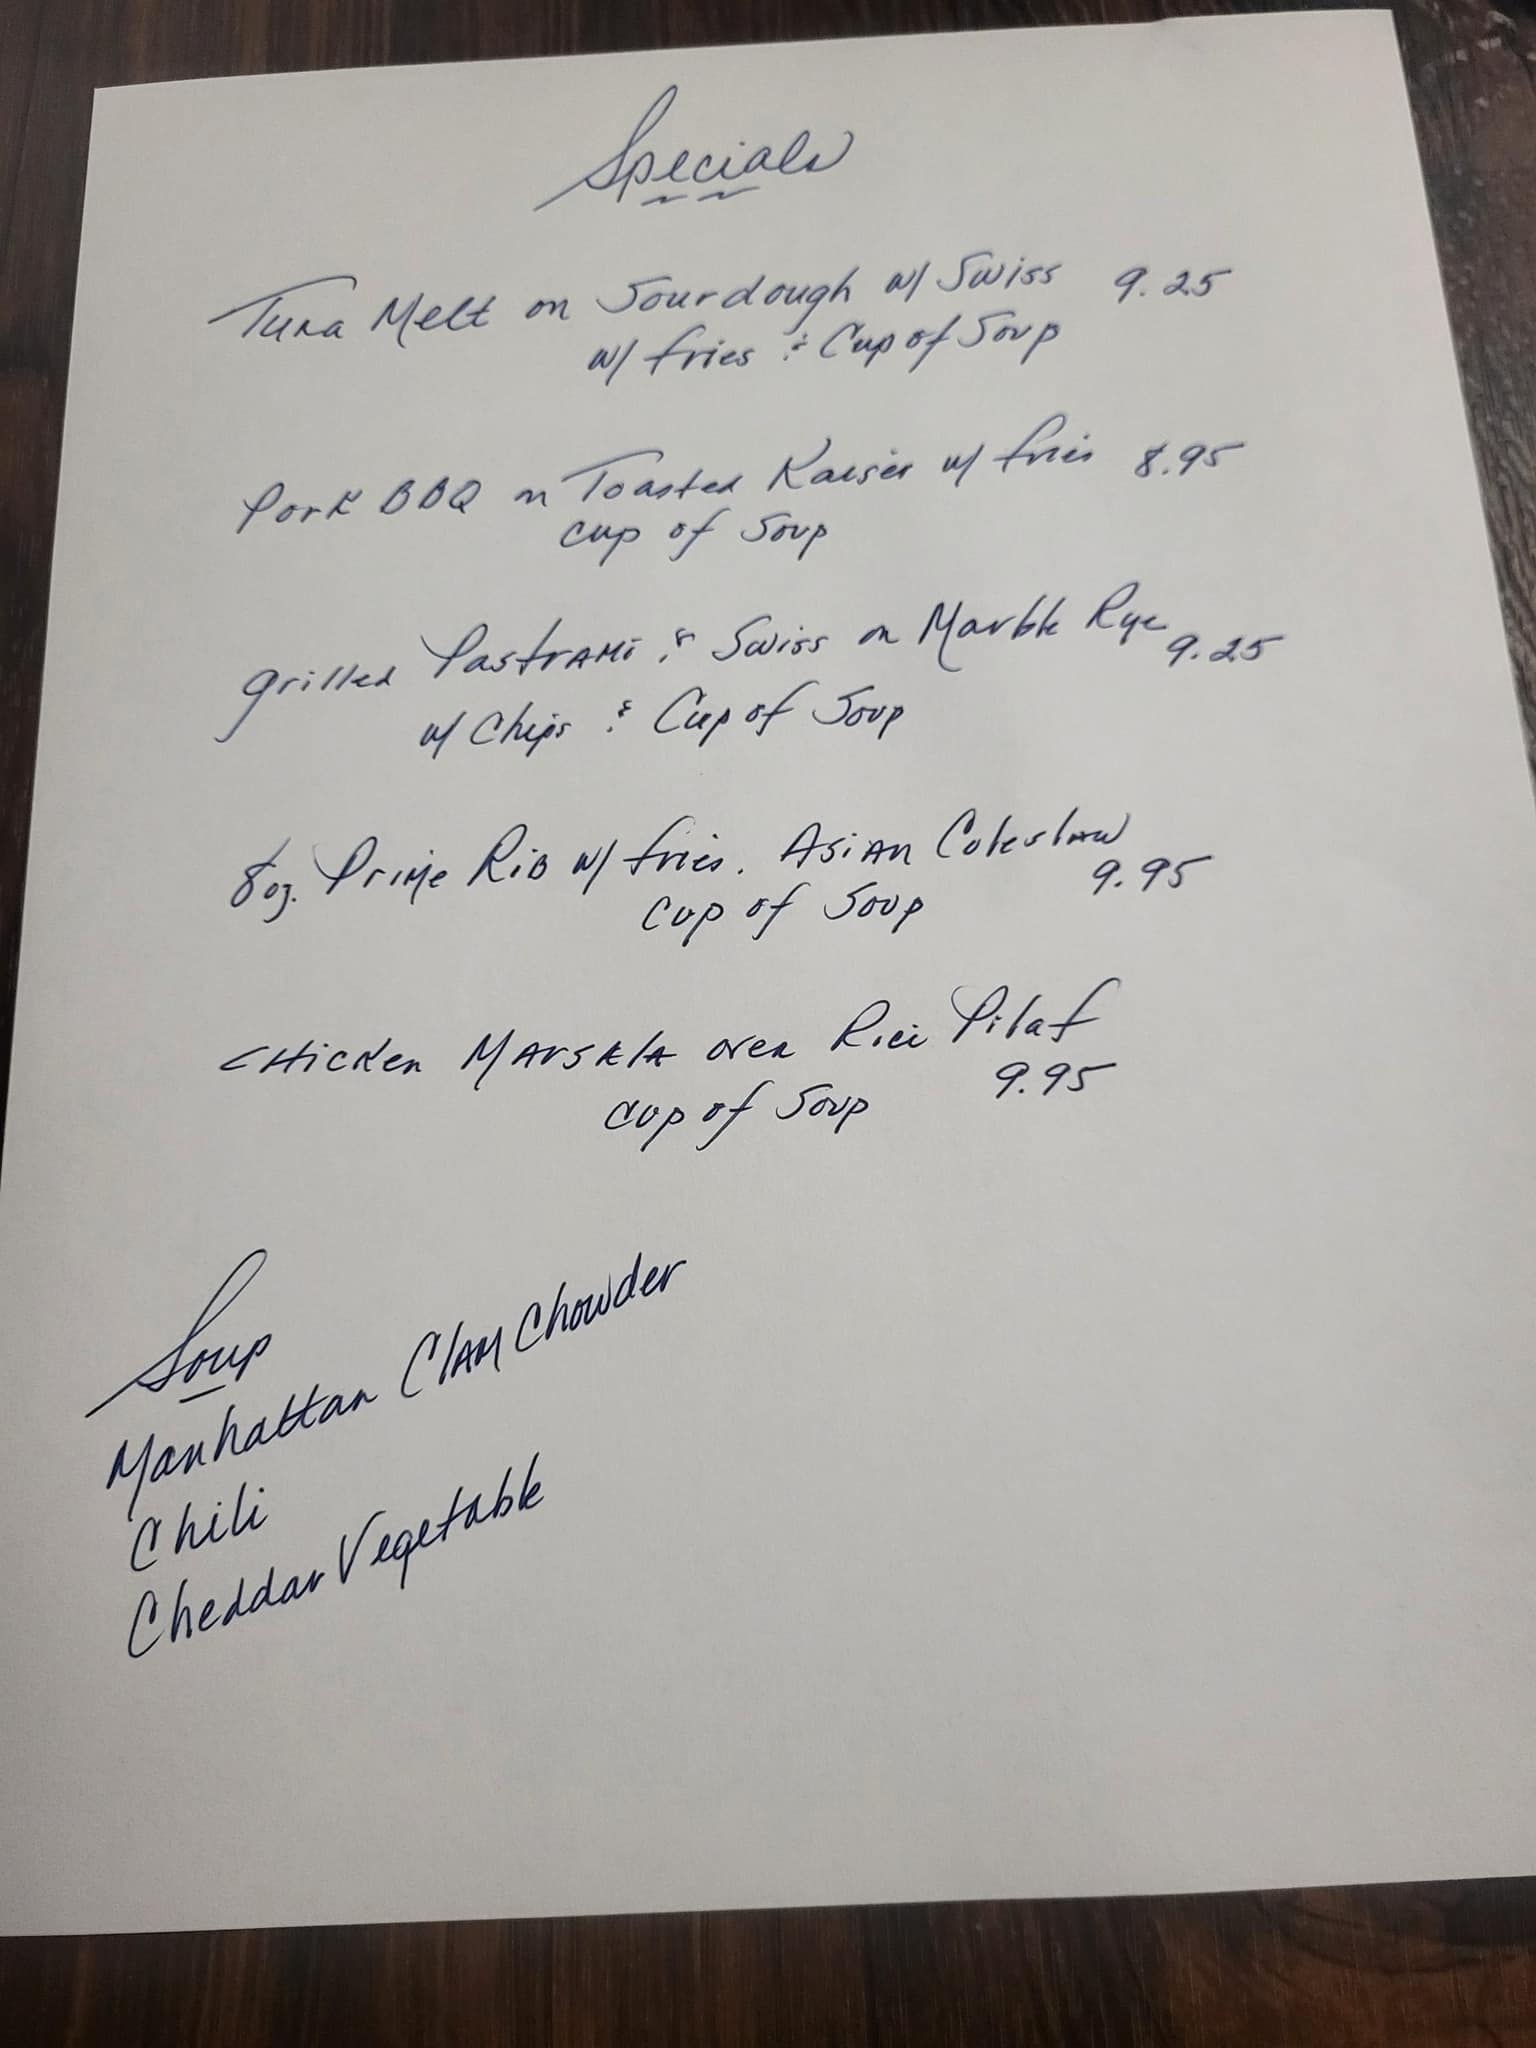 Specials
Tuna Melt on Sourdough w/ Swiss 9.25
w/ fries & Cup of Soup
Pork BBQ on Toasted Kaiser w/ fries 8.95
cup of Soup
grilled Pastrami & Swiss on Marble Rye 9.25
w/ Chips & Cup of Soup
8 oz. Prime Rib w/ fries. Asian Coleslaw
9.95
Cup of Soup
Chicken Marsala over Rice Pilaf
9.95
Cup of Soup
Soup
Manhattan Clam Chowder
Chili
Cheddar Vegetable